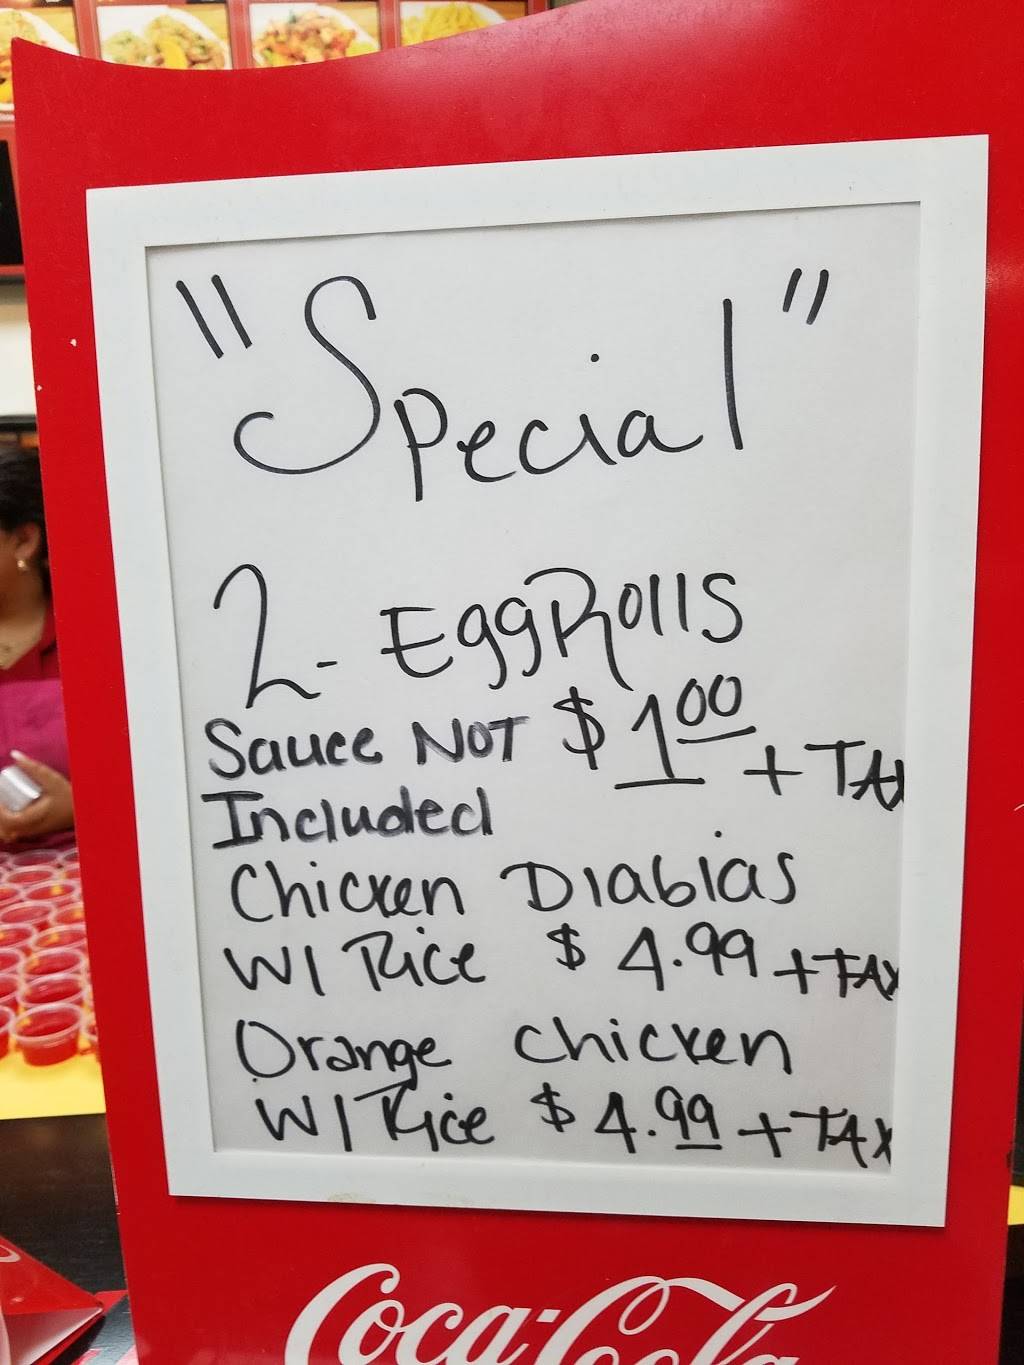 "Special"
2- EggRolls
Sauce NOT $1.00 + TAX
Included
Chicken Diablas
W/ Rice $4.99 + TAX
Orange chicken
W/ Rice $4.99 + TAX
Coca-Cola